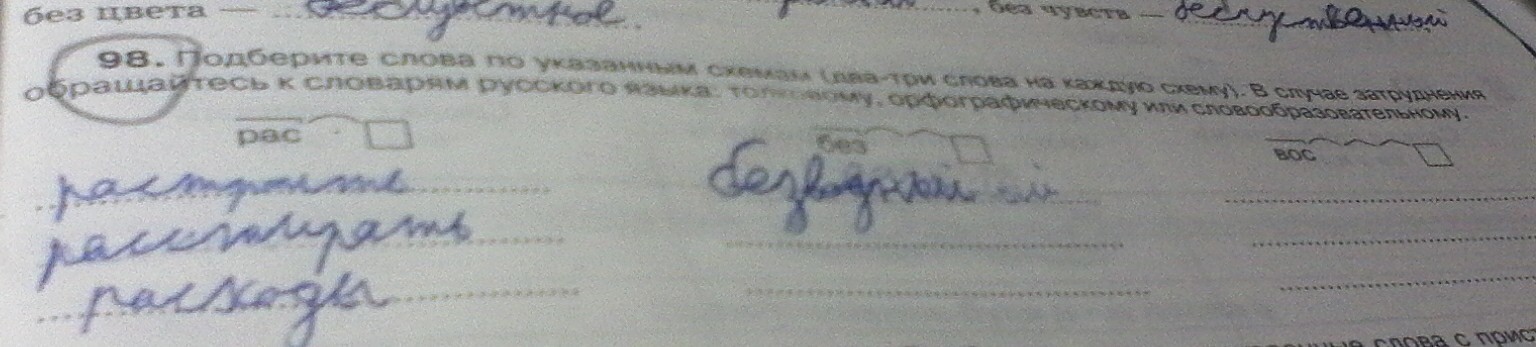 без цвета — бесцветное. , без чувств — бесчувственный
98. Подберите слова по указанным схемам (два-три слова на каждую схему). В случае затруднения
обращайтесь к словарям русского языка: толковому, орфографическому или словообразовательному.
рас без вос
безводный
расстирать
расходы
слова с прист